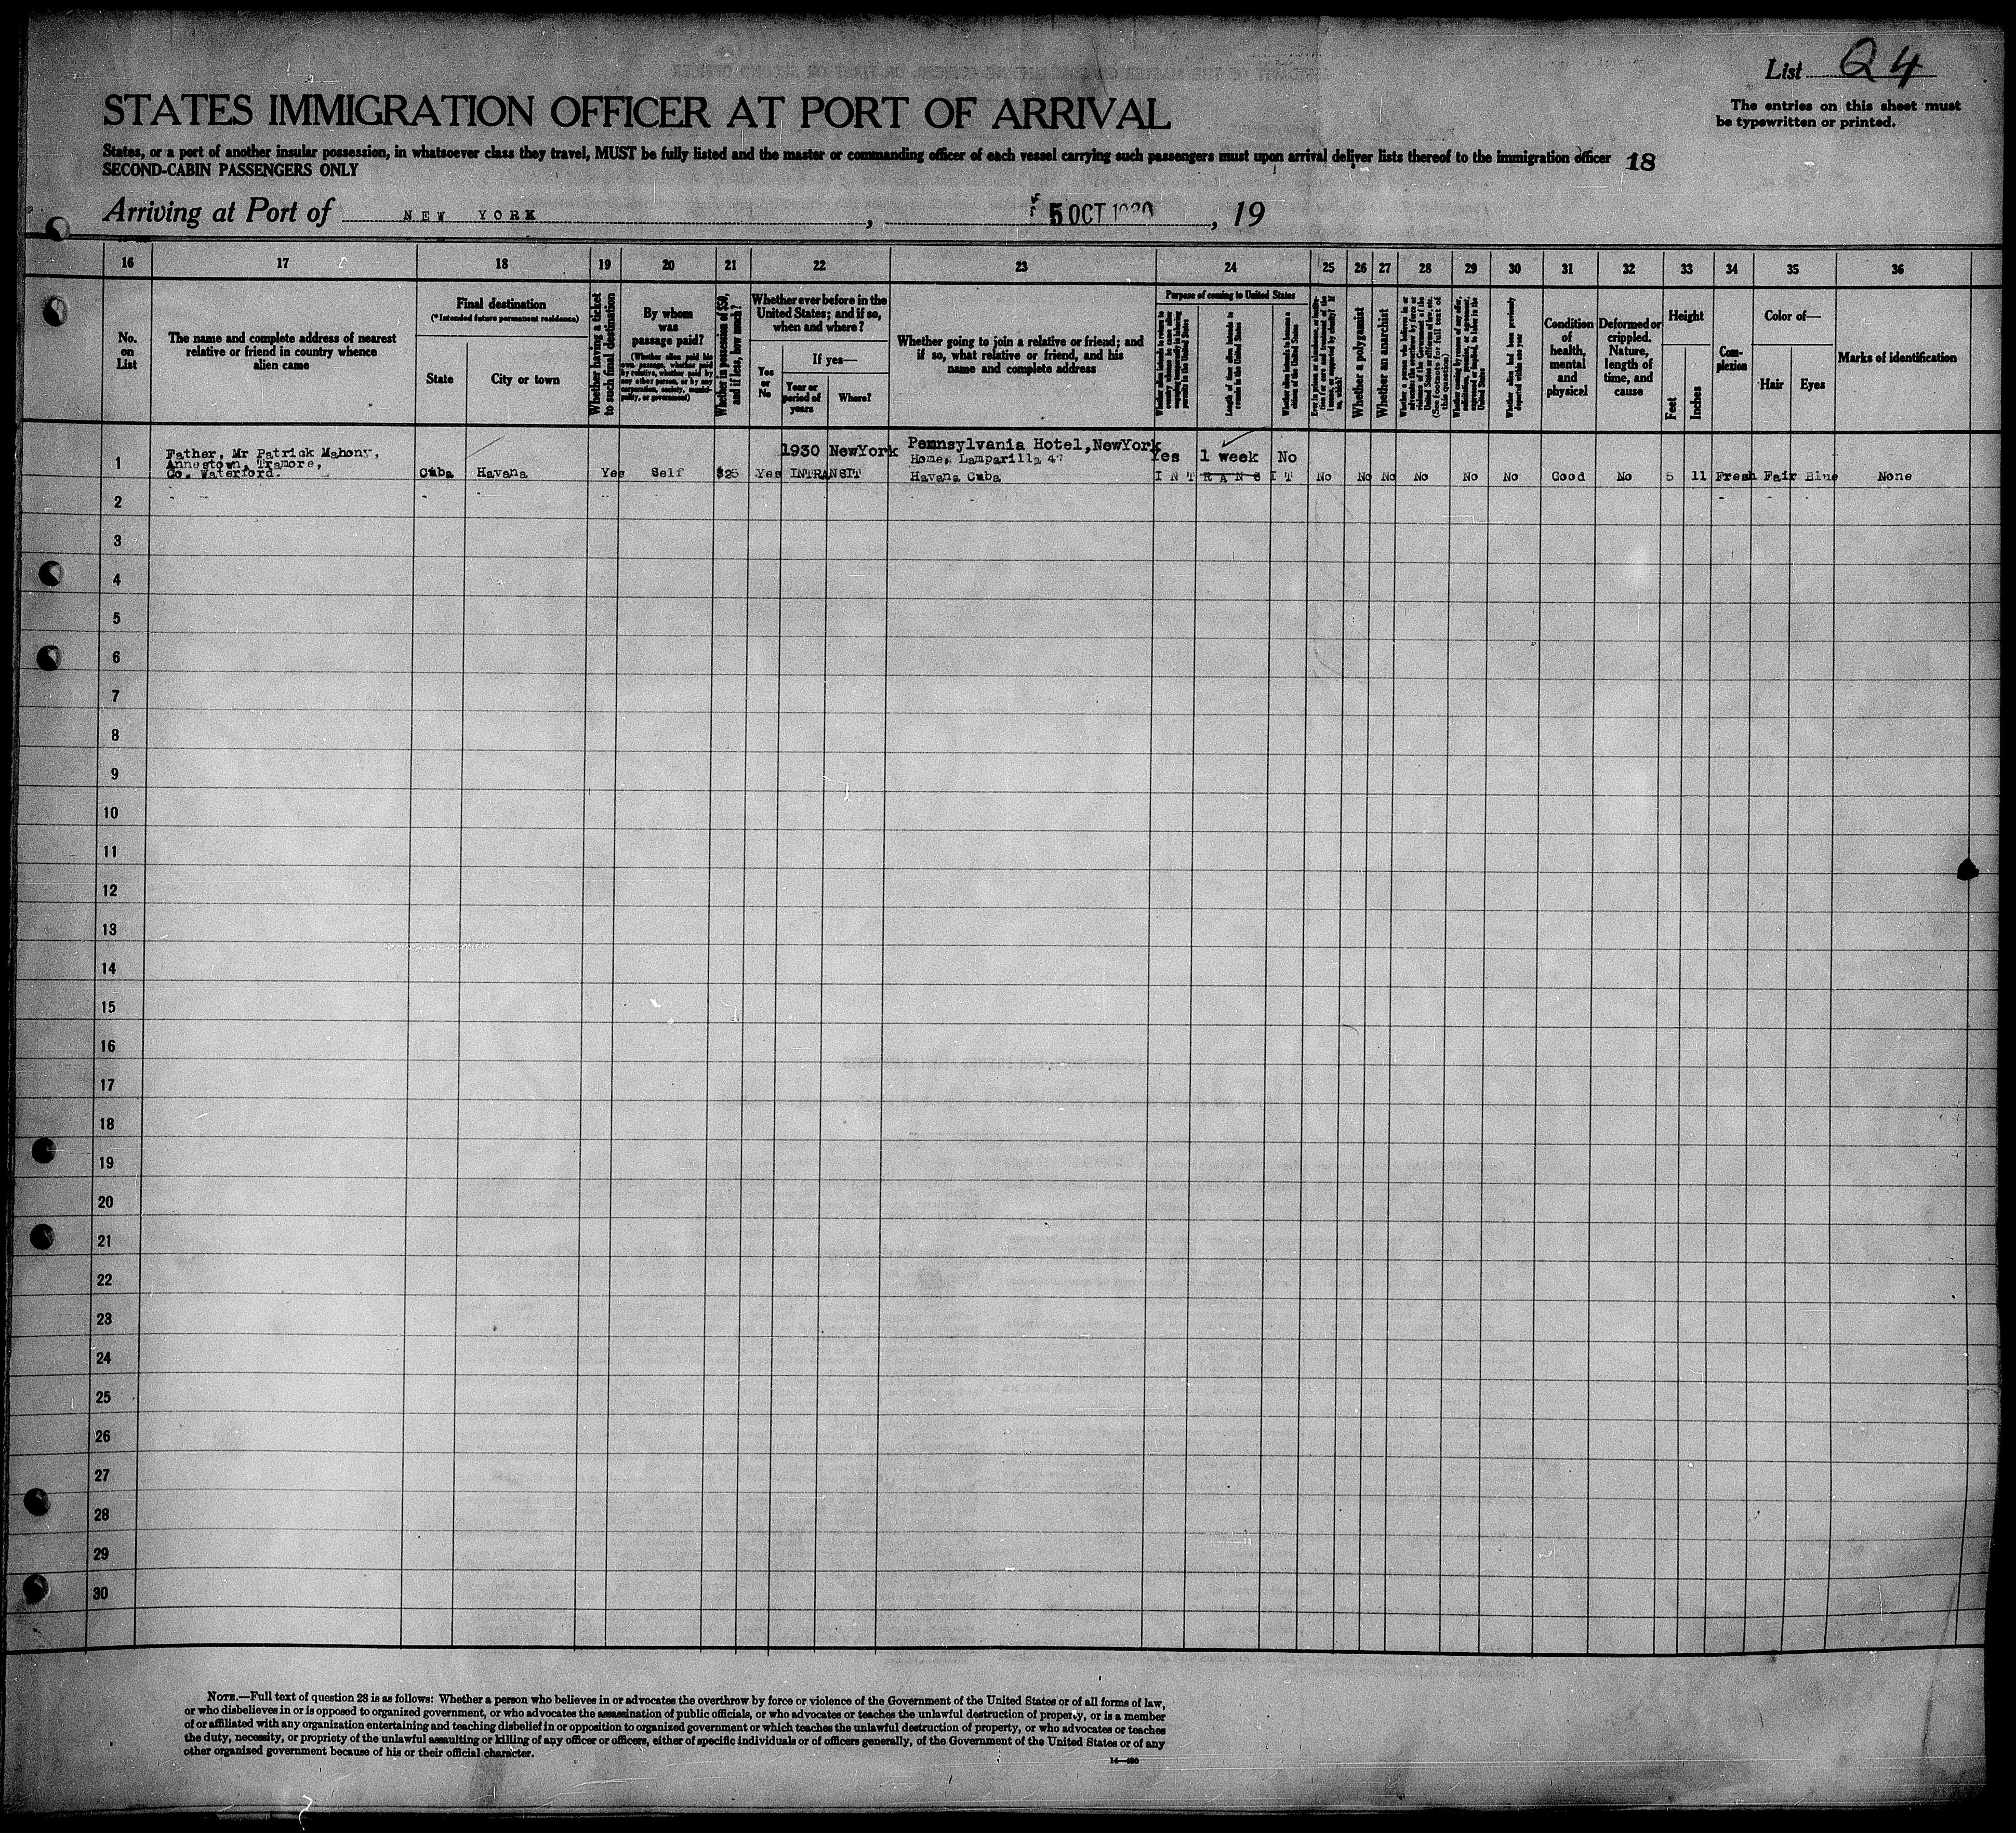 List 24
The entries on this sheet must
be typewritten or printed.
STATES IMMIGRATION OFFICER AT PORT OF ARRIVAL
States, or a port of another insular possession, in whatsoever class they travel, MUST be fully listed and the master or commanding officer of each vessel carrying such passengers must upon arrival deliver lists thereof to the immigration officer 18
SECOND-CABIN PASSENGERS ONLY
Arriving at Port of NEW YORK, 5 OCT 1930, 19
16 17 18 19 20 21 22 23 24 25 26 27 28 29 30 31 32 33 34 35 36
No.
on
List
The name and complete address of nearest
relative or friend in country whence
alien came
Final destination
(*Intended future permanent residence)
State
City or town
Whether having a ticket
to such final destination
By whom
was
passage paid?
(Whether alien paid his
own passage, whether paid
by relative, whether paid by
any other person, or by any
corporation, society, munici-
pality, or government)
Whether in possession of $50,
and if less, how much?
Whether ever before in the
United States; and if so,
when and where?
Yes
or
No
If yes—
Year or
period of
years
Where?
Whether going to join a relative or friend; and
if so, what relative or friend, and his
name and complete address
Purpose of coming to United States
Length of time alien intends to
remain in the United States
Whether alien intends to become a
citizen of the United States
Whether a polygamist
Whether an anarchist
(See footnote for full text of
this question)
Whether alien had been previously
deported within one year
Condition
of
health,
mental
and
physical
Deformed or
crippled.
Nature,
length of
time, and
cause
Height
Feet
Inches
Com-
plexion
Color of—
Hair
Eyes
Marks of identification
1
Father, Mr Patrick Mahony,
Annestown, Tramore,
Co. Waterford.
Cuba Havana Yes Self $25 Yes
1930 NewYork
INTRANSIT
Pennsylvania Hotel, NewYork
Home, Lamparilla 47
Havana Cuba
Yes 1 week No
INTRANSIT
No No No No No No Good No 5 11 Fresh Fair Blue None
2
3
4
5
6
7
8
9
10
11
12
13
14
15
16
17
18
19
20
21
22
23
24
25
26
27
28
29
30
NOTE.—Full text of question 28 is as follows: Whether a person who believes in or advocates the overthrow by force or violence of the Government of the United States or of all forms of law,
or who disbelieves in or is opposed to organized government, or who advocates the assassination of public officials, or who advocates or teaches the unlawful destruction of property, or is a member
of or affiliated with any organization entertaining and teaching disbelief in or opposition to organized government or which teaches the unlawful destruction of property, or who advocates or teaches
the duty, necessity, or propriety of the unlawful assaulting or killing of any officer or officers, either of specific individuals or of officers generally, of the Government of the United States or of any
other organized government because of his or their official character.